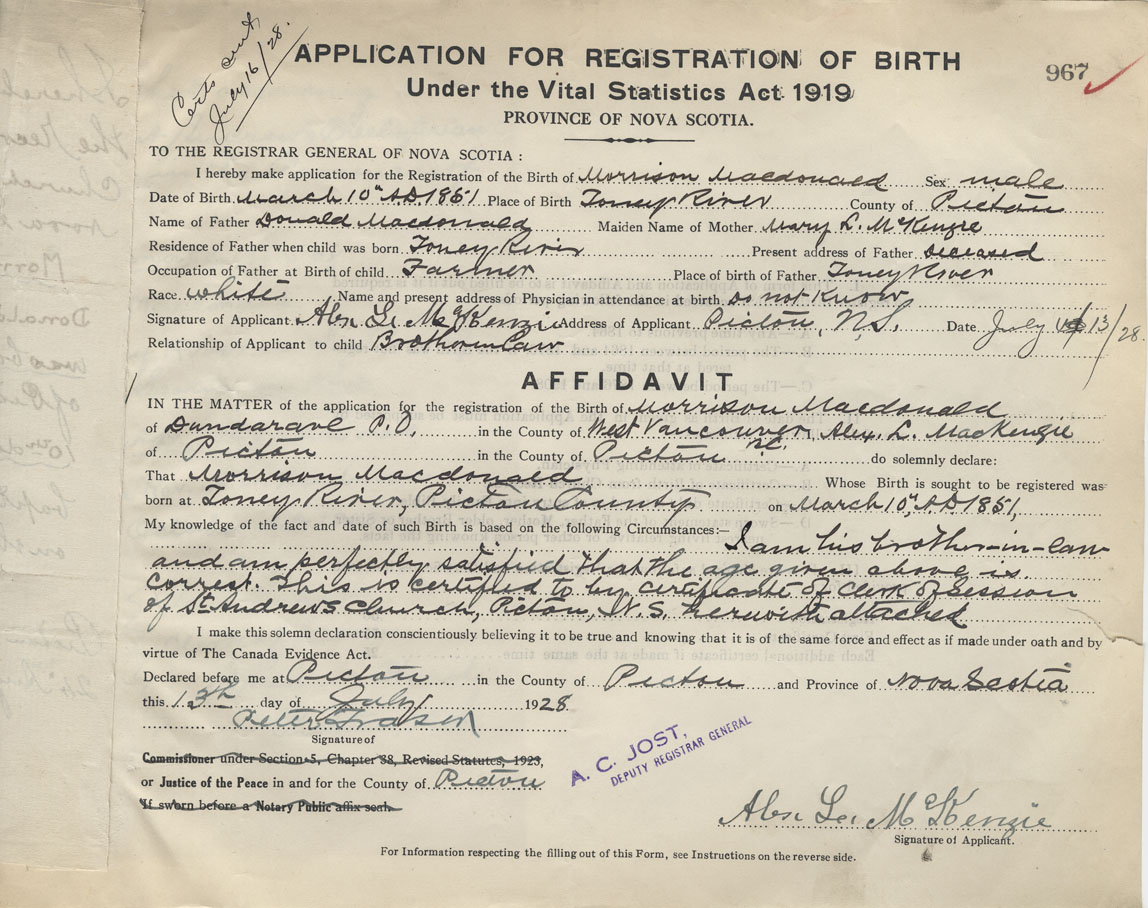 Certs sent
July 16/28.
APPLICATION FOR REGISTRATION OF BIRTH
967
Under the Vital Statistics Act 1919
PROVINCE OF NOVA SCOTIA.
TO THE REGISTRAR GENERAL OF NOVA SCOTIA :
I hereby make application for the Registration of the Birth of Morrison Macdonald Sex male
Date of Birth March 10th AD 1851 Place of Birth Toney River County of Pictou
Name of Father Donald Macdonald Maiden Name of Mother Mary L. McKenzie
Residence of Father when child was born Toney River Present address of Father deceased
Occupation of Father at Birth of child Farmer Place of birth of Father Toney River
Race white Name and present address of Physician in attendance at birth Do not know
Signature of Applicant Alex. L. McKenzie Address of Applicant Pictou, N.S. Date July 13/28.
Relationship of Applicant to child Brother in Law
AFFIDAVIT
IN THE MATTER of the application for the registration of the Birth of Morrison Macdonald
of Dundarave P.O. in the County of West Vancouver, Alex. L. MacKenzie
of Pictou in the County of Pictou N.S. do solemnly declare:
That Morrison Macdonald Whose Birth is sought to be registered was
born at Toney River, Pictou County on March 10th, AD 1851,
My knowledge of the fact and date of such Birth is based on the following Circumstances:— I am his brother-in-law
and am perfectly satisfied that the age given above is
correct. This is certified to by certificate of Clerk of Session
of St. Andrews Church, Pictou, N.S. herewith attached
I make this solemn declaration conscientiously believing it to be true and knowing that it is of the same force and effect as if made under oath and by
virtue of The Canada Evidence Act.
Declared before me at Pictou in the County of Pictou and Province of Nova Scotia
this 13th day of July 1928
Peter Fraser
Signature of
Commissioner under Section 5, Chapter 38, Revised Statutes, 1923,
or Justice of the Peace in and for the County of Pictou
If sworn before a Notary Public affix seal.
A. C. JOST,
DEPUTY REGISTRAR GENERAL
Alex. L. McKenzie
Signature of Applicant.
For Information respecting the filling out of this Form, see Instructions on the reverse side.